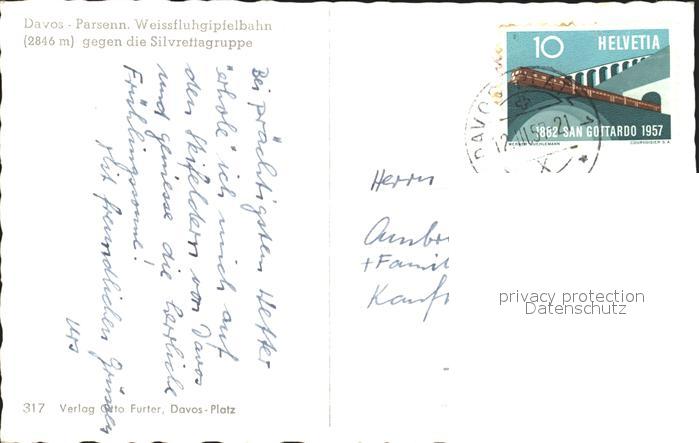 Davos - Parsenn. Weissfluhgipfelbahn
(2846 m) gegen die Silvrettagruppe
Bei prächtigstem Wetter
"erhole" ich mich auf
den Skifeldern von Davos
und geniesse die herrliche
Frühlingssonne!
Mit freundlichen Grüssen
Urs
317 Verlag Otto Furter, Davos-Platz
10 HELVETIA
1882 SAN GOTTARDO 1957
COURVOISIER S.A.
DAVOS
Herrn
+ Famil
privacy protection
Datenschutz